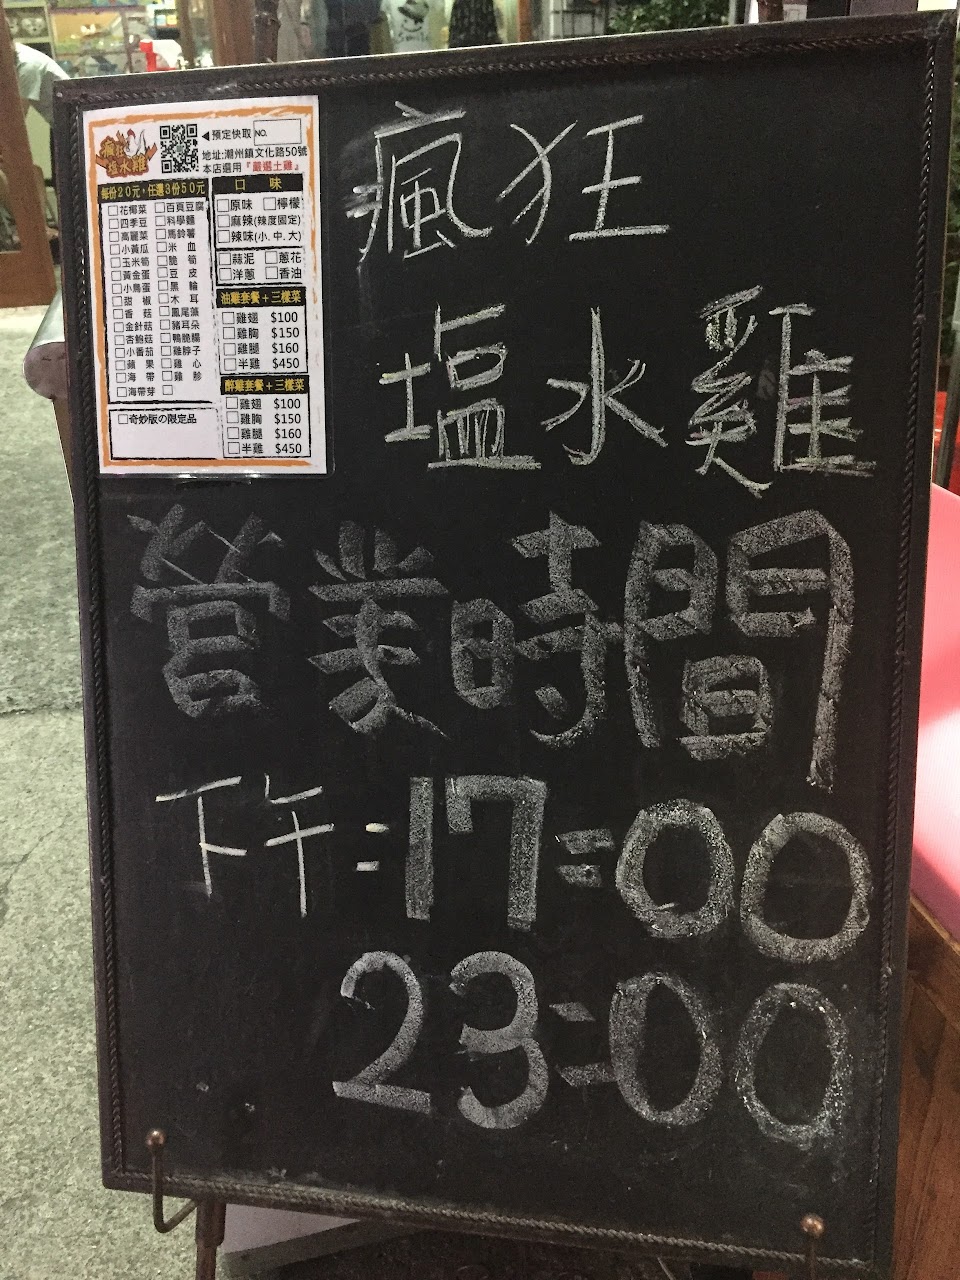 瘋狂
塩水雞
◀預定快取 NO.
地址:潮州鎮文化路50號
本店選用『嚴選土雞』
每份20元，任選3份50元
□花椰菜 □百頁豆腐
□四季豆 □科學麵
□高麗菜 □馬鈴薯
□小黃瓜 □米 血
□玉米筍 □脆 筍
□黃金蛋 □豆 皮
□小鳥蛋 □黑 輪
□甜 椒 □木 耳
□香 菇 □鳳尾藻
□金針菇 □豬耳朵
□杏鮑菇 □鴨脆腸
□小番茄 □雞脖子
□蘋 果 □雞 心
□海 帶 □雞 胗
□海帶芽 □
□奇妙版の限定品
口 味
□原味 □檸檬
□麻辣(辣度固定)
□辣味(小.中.大)
□蒜泥 □蔥花
□洋蔥 □香油
油雞套餐+三樣菜
□雞翅 $100
□雞胸 $150
□雞腿 $160
□半雞 $450
醉雞套餐+三樣菜
□雞翅 $100
□雞胸 $150
□雞腿 $160
□半雞 $450
瘋狂
塩水雞
營業時間
下午:17:00
23:00